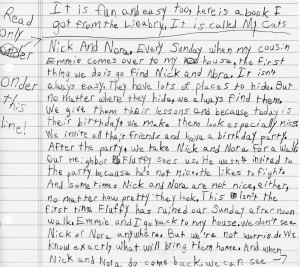 It is fun and easy too, here is a book I
got from the Lieabry. It is called My Cats
Nick And Nora. Every Sunday when my cousin
Emmie comes over to my house, the first
thing we do is go find Nick and Nora. It isn't
always easy. They have lots of places to hide. But
no matter where they hide, we always find them.
We give them their lessons and because today is
their birthday we make them look especially nice.
We invite all their friends and have a birthday party.
After the party, we take Nick and Nora for a walk
Our neighbor Fluffy sees us. He wasn't invited to
the party because he's not nice. He likes to fight.
And some times Nick and Nora are not nice, either,
no matter how pretty they look. This isn't the
first time Fluffy has ruined our Sunday after noon
walk. Emmie and I go back to my house. we don't see
Nick or Nora anywhere. But we're not worried. We
know exactly what will bring them home. And when
Nick and Nora do come back we can see →
Read
only
order
onder
this
line!